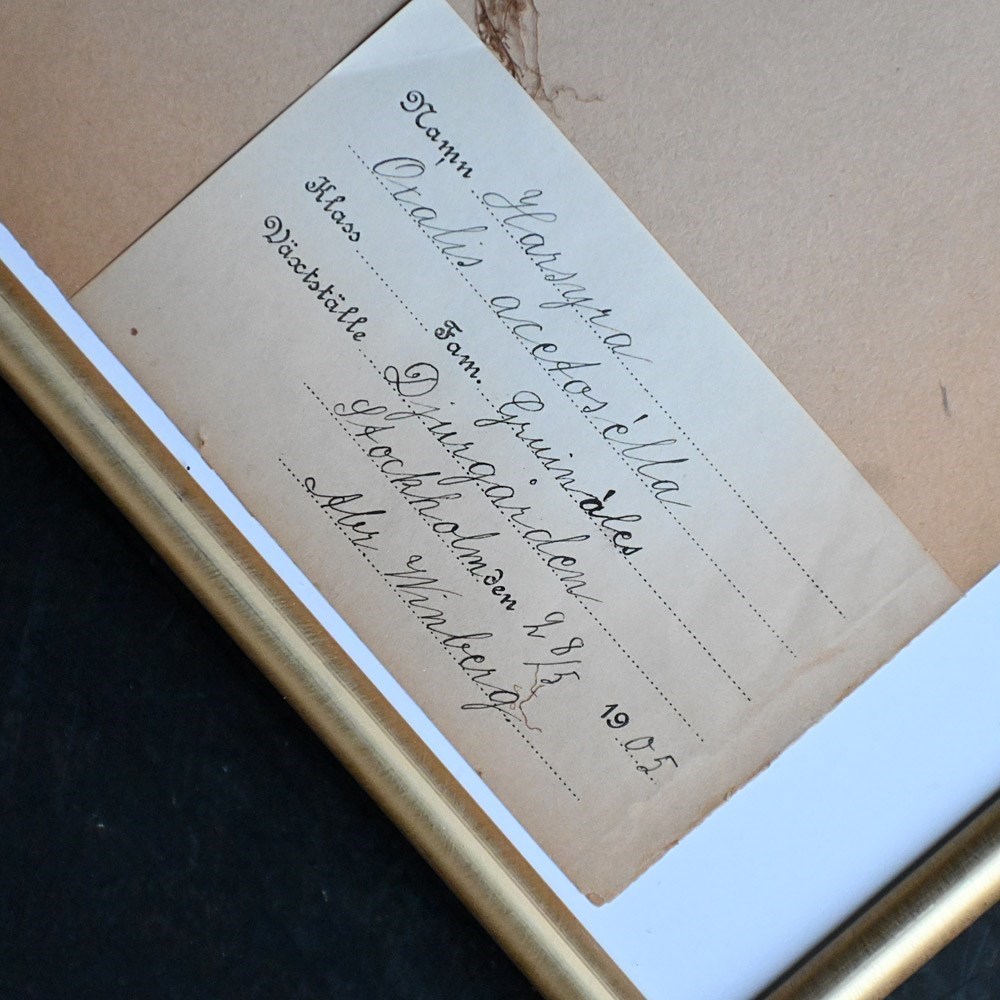 Namn Harsyra
Oxalis acetosélla
Klass Fam. Gruináles
Växtställe Djurgården
Stockholm den 28/5 1905
Abr. Winberg.